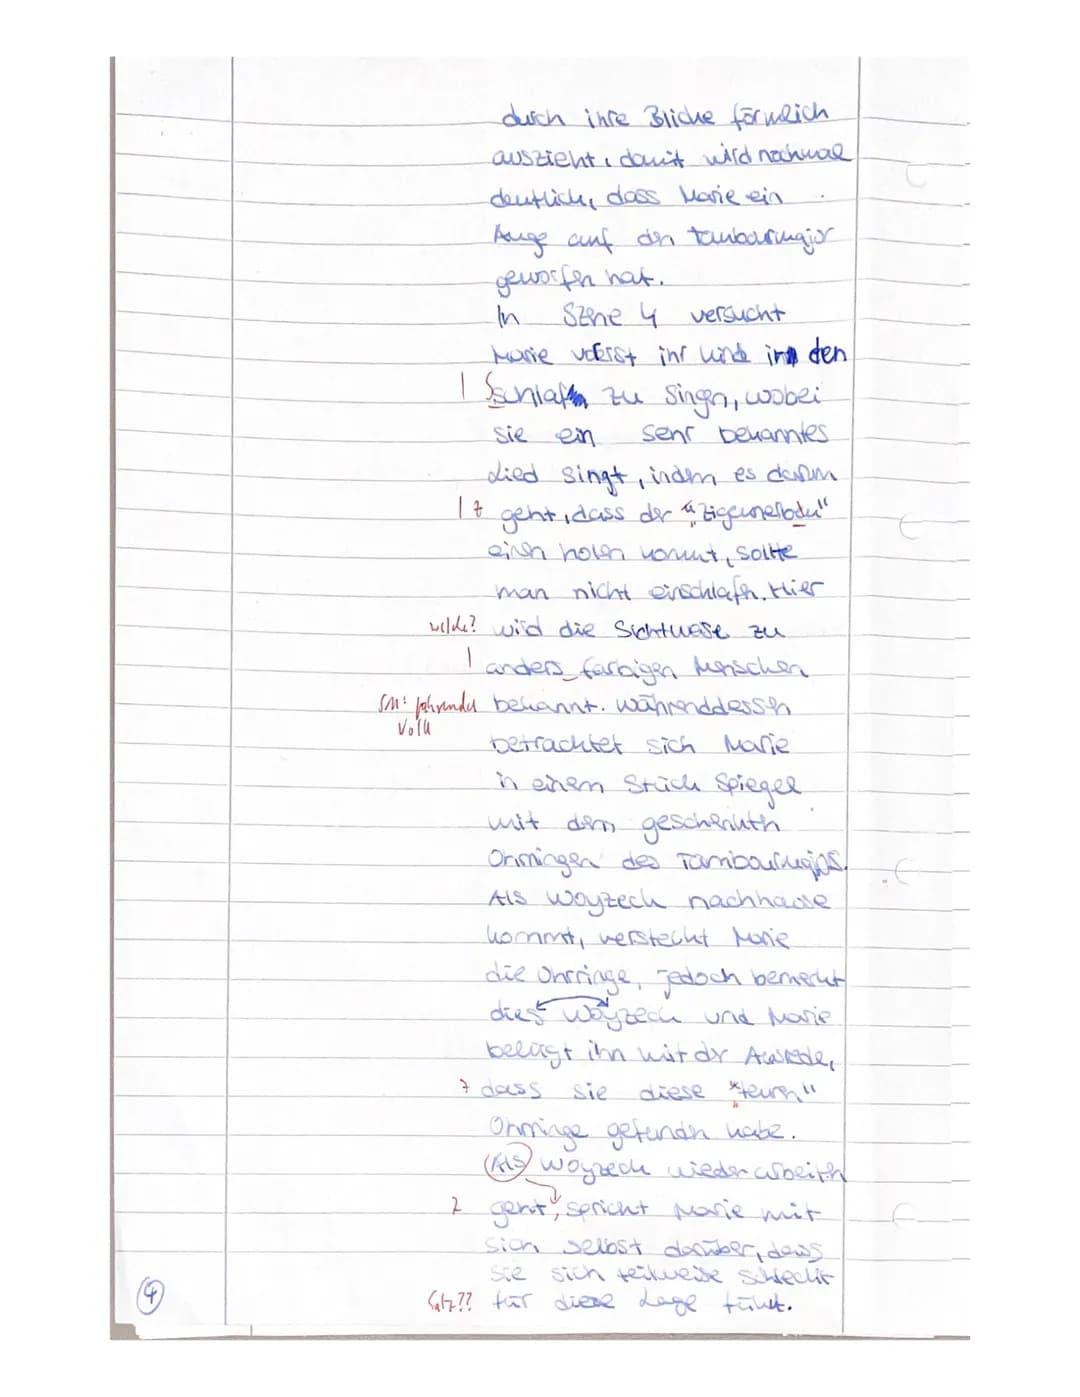 durch ihre Blicke förmlich
auszieht, damit wird nochmal
deutlich, dass Marie ein
Auge auf den Tambourmajor
geworfen hat.
In Szene 4 versucht
Marie vorerst ihr Kind in den
| Schlaf zu singen, wobei
sie ein sehr bekanntes
Lied singt, indem es darum
| z geht, dass der "Zigeunerbu"
einen holen kommt, sollte
man nicht einschlafen. Hier
welche? wird die Sichtweise zu
| anders farbigen Menschen
SM: fahrendes bekannt. Währenddessen
Volk
betrachtet sich Marie
in einem Stück Spiegel
mit dem geschenkten
Ohrringen des Tambourmajors.
Als Woyzeck nachhause
kommt, versteckt Marie
die Ohrringe, jedoch bemerkt
dies Woyzeck und Marie
belügt ihn mit der Ausrede,
z dass sie diese "teuren"
Ohrringe gefunden habe.
Als Woyzeck wieder arbeiten
z geht, spricht Marie mit
sich selbst darüber, dass
sie sich teilweise schlecht
Satz?? für diese Lage fühlt.
4